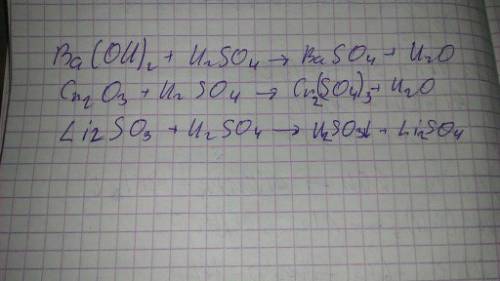 Ba(OH)₂ + H₂SO₄ → BaSO₄ + H₂O
Cr₂O₃ + H₂SO₄ → Cr₂(SO₄)₃ + H₂O
Li₂SO₃ + H₂SO₄ → H₂SO₃ + Li₂SO₄